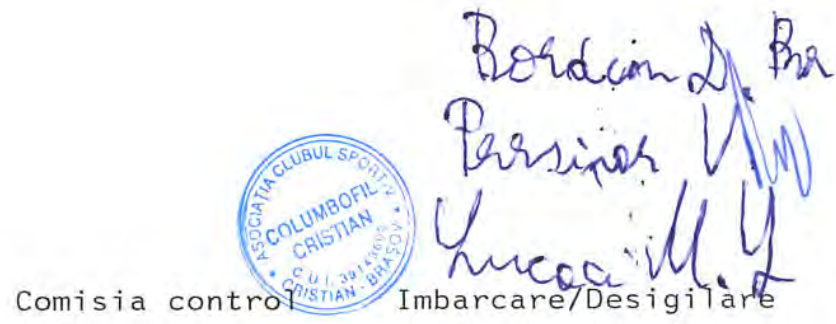 Bordean D. Bn
Persinar V.
Lucaci M.
ASOCIAȚIA CLUBUL SPORTIV
COLUMBOFIL
CRISTIAN
C U I. 39143600
CRISTIAN - BRAȘOV
Comisia control Imbarcare/Desigilare